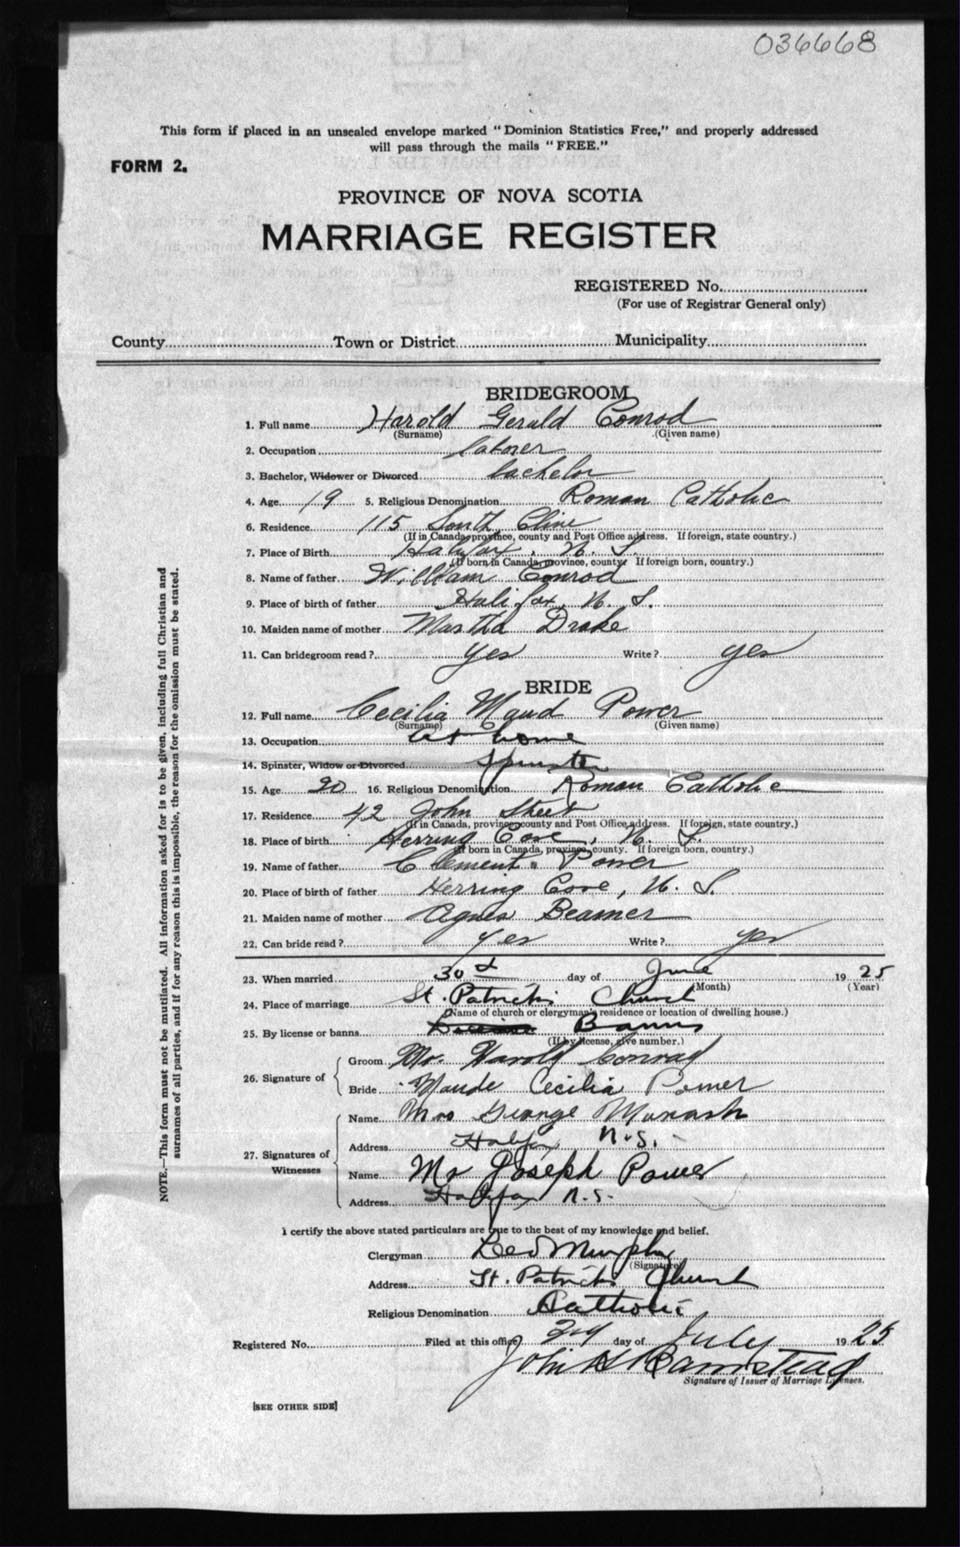 036668
This form if placed in an unsealed envelope marked "Dominion Statistics Free," and properly addressed
will pass through the mails "FREE."
FORM 2.
PROVINCE OF NOVA SCOTIA
MARRIAGE REGISTER
REGISTERED No.
(For use of Registrar General only)
County Town or District Municipality
BRIDEGROOM
1. Full name Harold Gerald Conrod
(Surname) (Given name)
2. Occupation laborer
3. Bachelor, Widower or Divorced bachelor
4. Age 19 5. Religious Denomination Roman Catholic
6. Residence 115 South Cline
(If in Canada, province, county and Post Office address. If foreign, state country.)
7. Place of Birth Halifax, N. S.
(If born in Canada, province, county. If foreign born, country.)
8. Name of father William Conrod
9. Place of birth of father Halifax, N. S.
10. Maiden name of mother Martha Drake
11. Can bridegroom read? yes Write? yes
BRIDE
12. Full name Cecilia Maud Power
(Surname) (Given name)
13. Occupation at home
14. Spinster, Widow or Divorced Spinster
15. Age 20 16. Religious Denomination Roman Catholic
17. Residence 42 John Street
(If in Canada, province, county and Post Office address. If foreign, state country.)
18. Place of birth Herring Cove, N. S.
(If born in Canada, province, county. If foreign born, country.)
19. Name of father Clement Power
20. Place of birth of father Herring Cove, N. S.
21. Maiden name of mother Agnes Beamer
22. Can bride read? yes Write? yes
23. When married 30 day of June 1925
(Month) (Year)
24. Place of marriage St. Patrick's Church
(Name of church or clergyman's residence or location of dwelling house.)
25. By license or banns Banns
(If by license, give number.)
26. Signature of
Groom Mr. Harold Conrad
Bride Maude Cecilia Power
27. Signatures of Witnesses
Name Mrs George
Address Halifax N.S.
Name Mr Joseph Power
Address Halifax N.S.
I certify the above stated particulars are true to the best of my knowledge and belief.
Clergyman Leo Murphy
(Signature)
Address St. Patrick's Church
Religious Denomination Catholic
Registered No. Filed at this office day of July 1925
John H Barnstead
Signature of Issuer of Marriage Licenses.
[SEE OTHER SIDE]
NOTE.—This form must not be mutilated. All information asked for is to be given, including full Christian and
surnames of all parties, and if for any reason this is impossible, the reason for the omission must be stated.